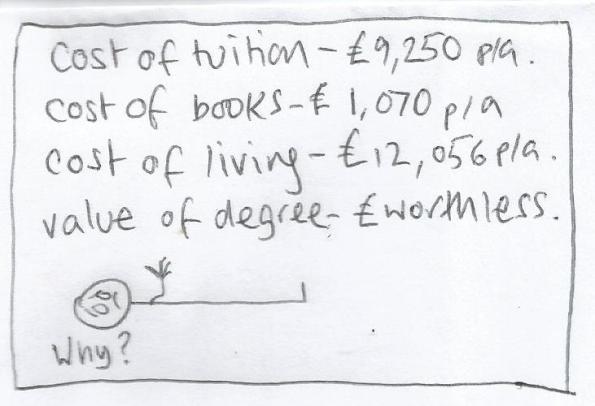 Cost of tuition - £9,250 p/a.
cost of books - £1,070 p/a
cost of living - £12,056 p/a.
value of degree - £worthless.
Why?